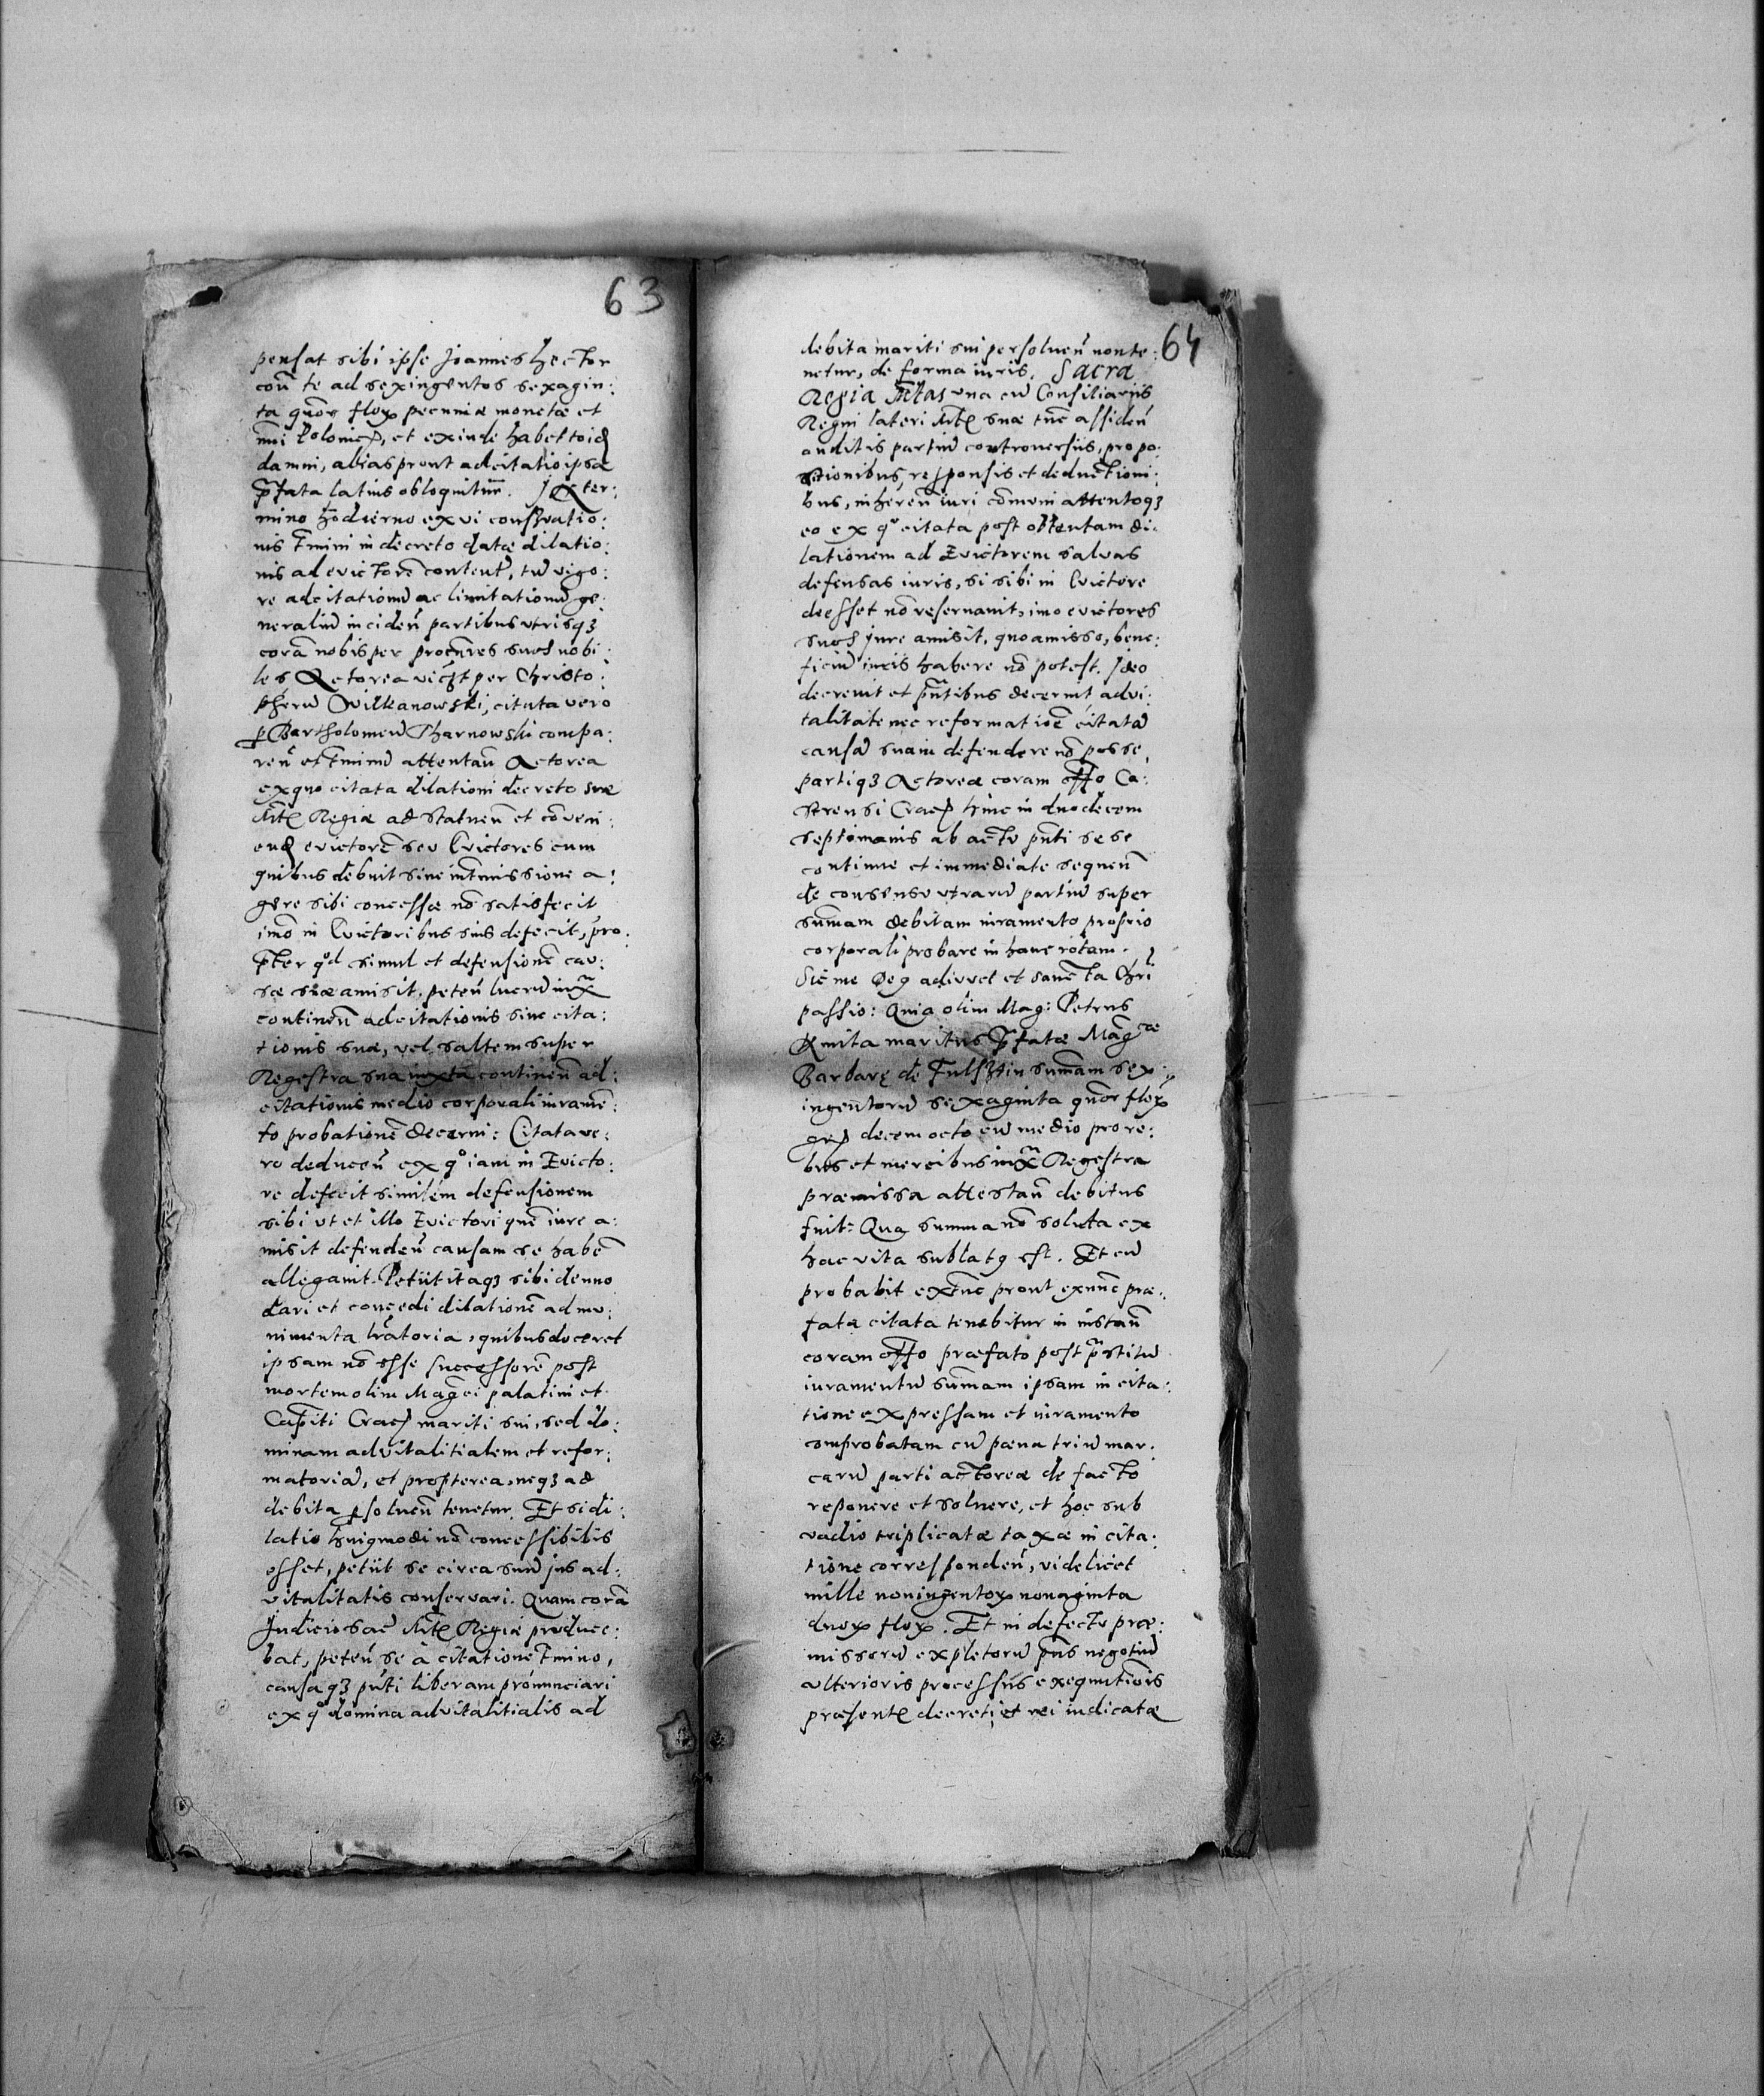 63
pensat sibi ipse Joannes Hector
coñ te ad sexingentos sexagin:
ta quõr floꝝ pecuniæ monetæ et
nũi Polonicꝭ, et exinde habet toidꝫ
damni, alias prout adcitatio ipsa
p̃fata latius obloquitur. In ter:
mino hodierno ex vi conseruatio:
nis t̃mini in decreto datæ dilatio:
nis ad evictorẽ content̃, tũ vigo:
re adcitationũ ac limitationũ ge:
neraliũ inciden̄ partibus utrisqꝫ
corã nobis per procũres suos nobi:
les Actorea vič͂ꝫt per Christo:
pherũ Wilkanowski, citata vero
ꝑ Bartholomeũ Tharnowski compa:
ren̄ et t̃minũ attentan̄ Actorea
ex quo citata dilationi decreto suæ
Mt̃ꝭ Regiæ ad statuen̄ et cõveni:
endꝫ evictorẽ seu Evictores cum
quibus debuit sine int̃missione a:
gere sibi concessæ nõ satisfecit
imõ in Evictoribus suis defecit, pro:
p̃ter qͦd simul et defensionẽ cau:
sæ suæ amisit, peten̄ lucrũ iux̃
continen̄ adcitationis sive cita:
tionis suæ, vel saltem super
Regestra sua iuxta continen̄ ad:
citationis medio corporali iuramẽ:
to probationẽ decerni: Citata ve:
ro deducen̄ ex qͦ iam in Evicto:
re defecit similem defensionem
sibi ut et illo Evictori quẽ iure a:
misit defenden̄ causam se habẽ
allegavit. Petiit itaqꝫ sibi denuo
dari et concedi dilationẽ ad mu:
nimenta lr̃atoria, quibus doceret
ipsam nõ esse successorẽ post
mortem olim Mag̃ci palatini et
Capiti Cracꝭ mariti sui, sed do:
minam advitalitialem et refor:
matoriã, et propterea, neqꝫ ad
debita ꝑsoluen̄ tenetur. Et si di:
latio huiqmodi nõ concessibilis
esset, petiit se circa suũ jus ad:
vitalitatis conservari. Quam corã
Judicio sac̃ Mt̃ꝭ Regiæ produce:
bat, peten̄ se à citatione t̃mino,
causaqꝫ pñti liberam pronunciari
ex qͦ domina advitalitialis ad
64
debita mariti sui persoluen̄ non te:
netur, de forma iuris. Sacra
Regia M̃tas una cũ Consiliariis
Regni lateri Mt̃ꝭ suæ tũc assiden̄
auditis partiũ controversiis, propo:
sitionibus, responsis et deductioni:
bus, inheren̄ iuri cõmuni attentoqꝫ
eo ex qͦ citata post obtentam di:
lationem ad Evictorem salvas
defensas iuris, si sibi in Evictore
deesset nõ reservavit, imo evictores
suos jure amisit, quo amisso, bene:
ficiũ iuris habere nõ potest. Ideo
decrevit et pñtibus decernit advi:
talitate nec reformatiõe citatã
causã suam defendere nõ posse,
partiqꝫ Actoreæ coram offo Ca:
strensi Cracꝭ hinc in duodecem
septimanis ab actu pñti se se
continue et immediate sequen̄
de consensu utrarũ partiũ super
sum̃am debitam iuramento proprio
corporali probare in hanc rotam.
Sic me Deꝰ adiuvet et sancta Chr̃i
passio: Quia olim Mag: Petrus
Kmita maritus p̃fatæ Mag̃cæ
Barbarę de Fulsztin sum̃am sex:
ingentorũ sexaginta quõr floꝝ
grꝭ decem octo cũ medio pro re:
bus et mercibus iux̃ Regestra
præmissa attestan̄ debitus
fuit: Qua summa nõ soluta ex
hac vita sublatꝰ est. Et cũ
probabit extũc prout exnũc præ:
fata citata tenebitur in instan̄
coram offo præfato post p̃stitũ
iuramentũ sum̃am ipsam in cita:
tione expressam et iuramento
comprobatam cũ pæna triũ mar:
carũ parti actoreæ de facto
reponere et solvere, et hoc sub
vadio triplicatæ taxæ in cita:
tione corresponden̄, videlicet
mille noningentoꝝ nonaginta
duoꝝ floꝝ. Et in defectu præ:
missorũ expletorũ pñs negotiũ
ulterioris processus exequutiõis
præsentꝭ decreti et rei iudicatæ